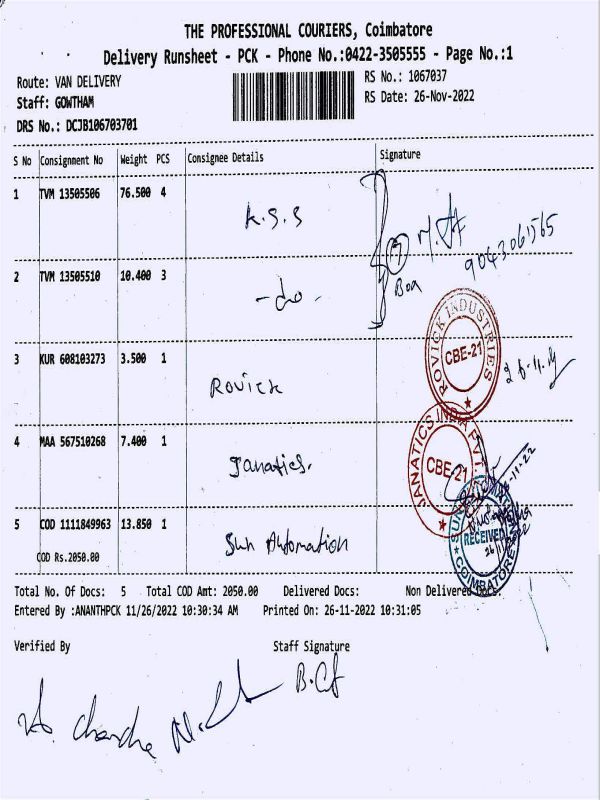 THE PROFESSIONAL COURIERS, Coimbatore
Delivery Runsheet - PCK - Phone No.:0422-3505555 - Page No.:1
Route: VAN DELIVERY
RS No.: 1067037
Staff: GOWTHAM
RS Date: 26-Nov-2022
DRS No.: DCJB106703701
S No Consignment No Weight PCS Consignee Details Signature
1 TVM 13505506 76.500 4 K.S.S
9043061565
2 TVM 13505510 10.400 3 -do-
Box
ROVICK INDUSTRIES
CBE-21
3 KUR 608103273 3.500 1 ROVICK
4 MAA 567510268 7.400 1 Janatics.
JANATICS INDIA PVT.
CBE-21
5 COD 1111849963 13.850 1 Sun Automation
RECEIVED
COIMBATORE
COD Rs.2050.00
Total No. Of Docs: 5 Total COD Amt: 2050.00 Delivered Docs: Non Delivered Docs:
Entered By :ANANTHPCK 11/26/2022 10:30:34 AM Printed On: 26-11-2022 10:31:05
Verified By Staff Signature
Chandra